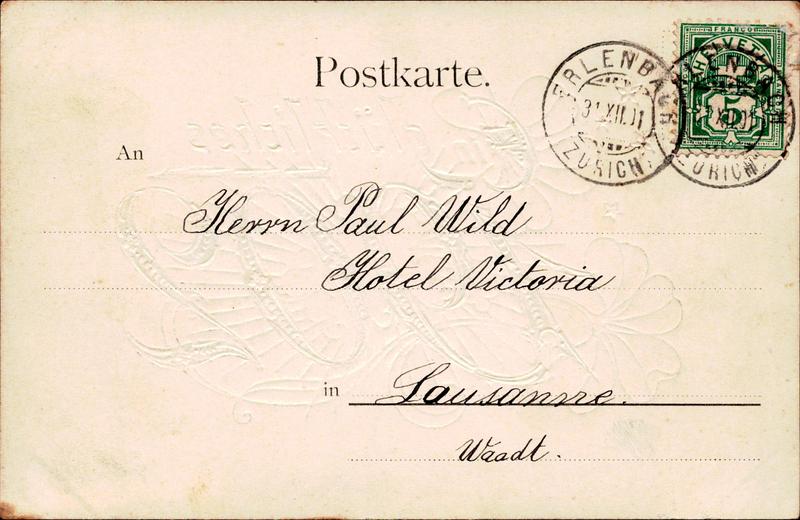 Postkarte.
FRANCO
HELVETIA
5
ERLENBACH
31.XII.01
(ZÜRICH)
An
Herrn Paul Wild
Hotel Victoria
in Lausanne.
Waadt.